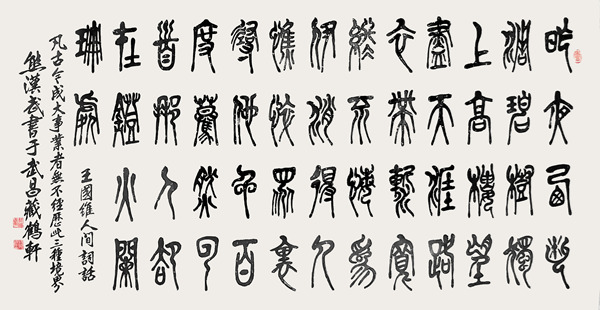 昨夜西風
凋碧樹獨
上高樓望
盡天涯路
衣帶漸寬
終不悔為
伊消得人
憔悴眾裏
尋他千百
度驀然回
首那人卻
在鐙火闌
珊處
王國維人間詞話
凡古今成大事業者無不經歷此三種境界
熊漢武書于武昌藏鶴軒